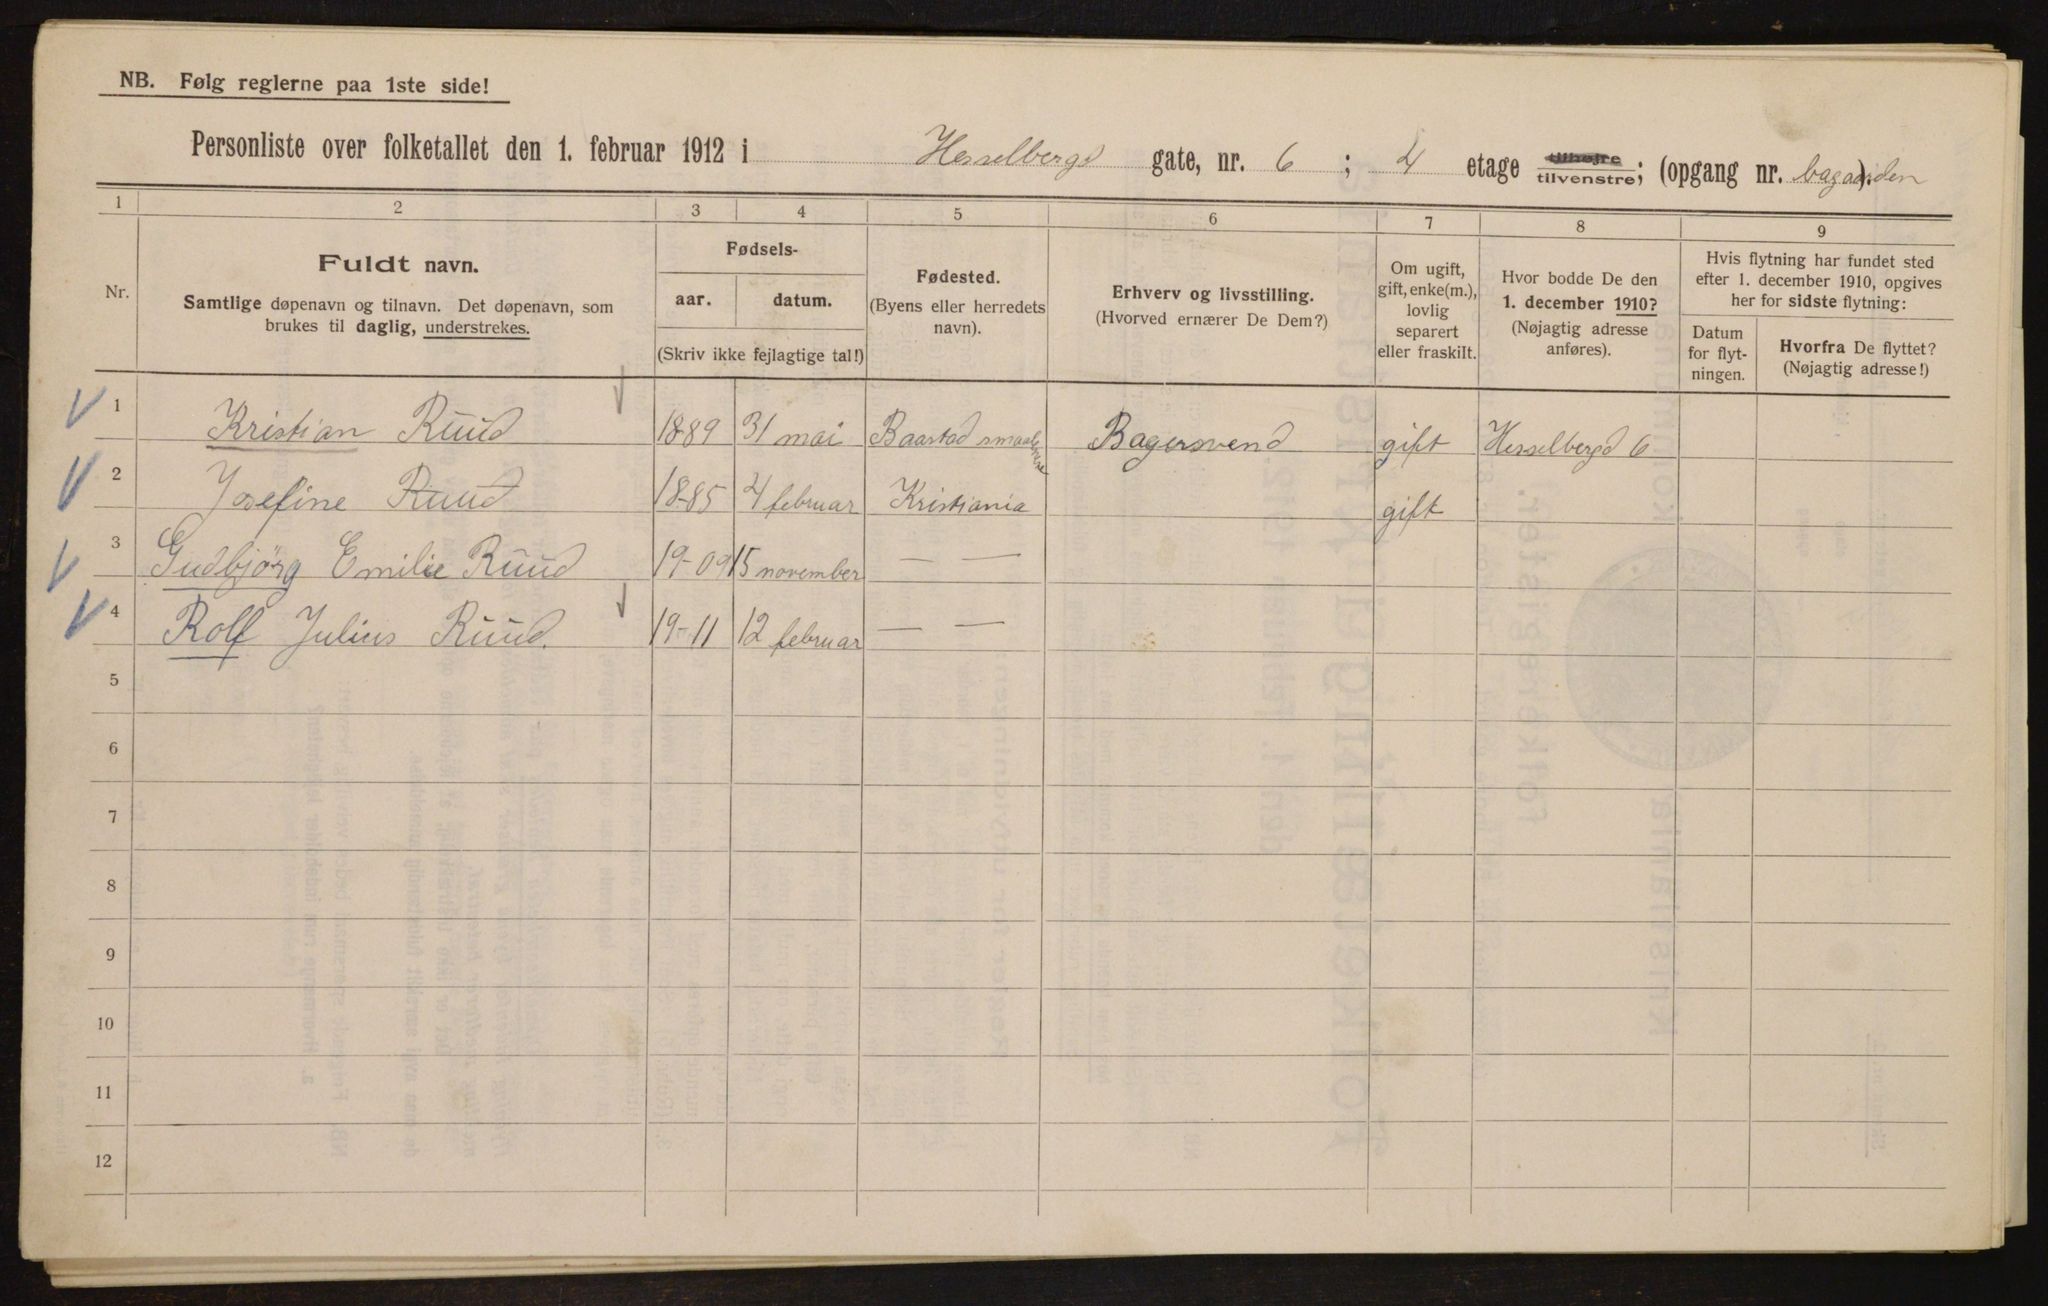 NB. Følg reglerne paa 1ste side!
Personliste over folketallet den 1. februar 1912 i Hesselbergs gate, nr. 6 ; 4 etage tilhøjre tilvenstre; (opgang nr. bagaarden).
1 2 3 4 5 6 7 8 9
Nr.
Fuldt navn.
Samtlige døpenavn og tilnavn. Det døpenavn, som
brukes til daglig, understrekes.
Fødsels-
aar. datum.
(Skriv ikke fejlagtige tal!)
Fødested.
(Byens eller herredets
navn).
Erhverv og livsstilling.
(Hvorved ernærer De Dem?)
Om ugift,
gift, enke(m.),
lovlig
separert
eller fraskilt.
Hvor bodde De den
1. december 1910?
(Nøjagtig adresse
anføres).
Hvis flytning har fundet sted
efter 1. december 1910, opgives
her for sidste flytning:
Datum
for flyt-
ningen.
Hvorfra De flyttet?
(Nøjagtig adresse!)
1 Kristian Ruud 1889 31 mai Baastad smaalenene Bagersvend gift Hesselbergd 6
2 Josefine Ruud 18-85 4 februar Kristiania gift
3 Gudbjörg Emilie Ruud 19-09 15 november — —
4 Rolf Julius Ruud. 19-11 12 februar — —
5
6
7
8
9
10
11
12